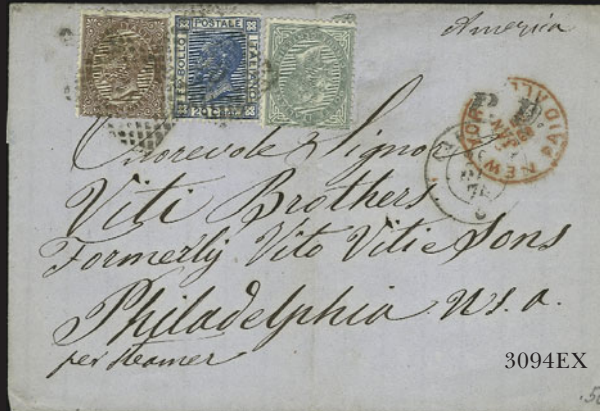 America
POSTALE
ITALIANO
20 C
BOLLO
P. D.
NEW YORK PAID ALL
Onorevole Signor
Viti Brothers,
Formerly Vito Viti e Sons
Philadelphia U.S.A.
per steamer
3094EX
.50